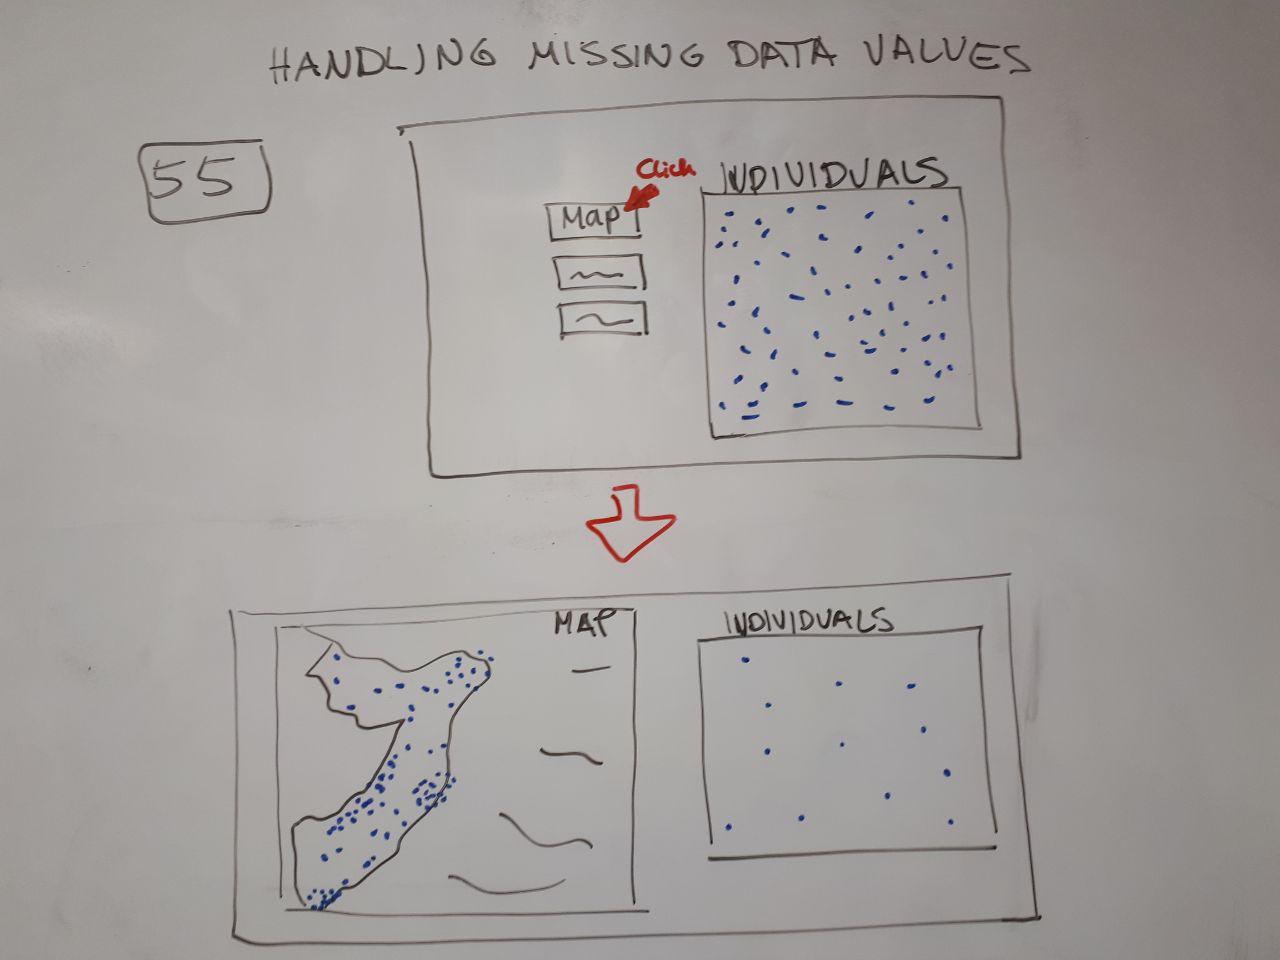 HANDLING MISSING DATA VALUES
55
Click
INDIVIDUALS
Map
MAP
INDIVIDUALS